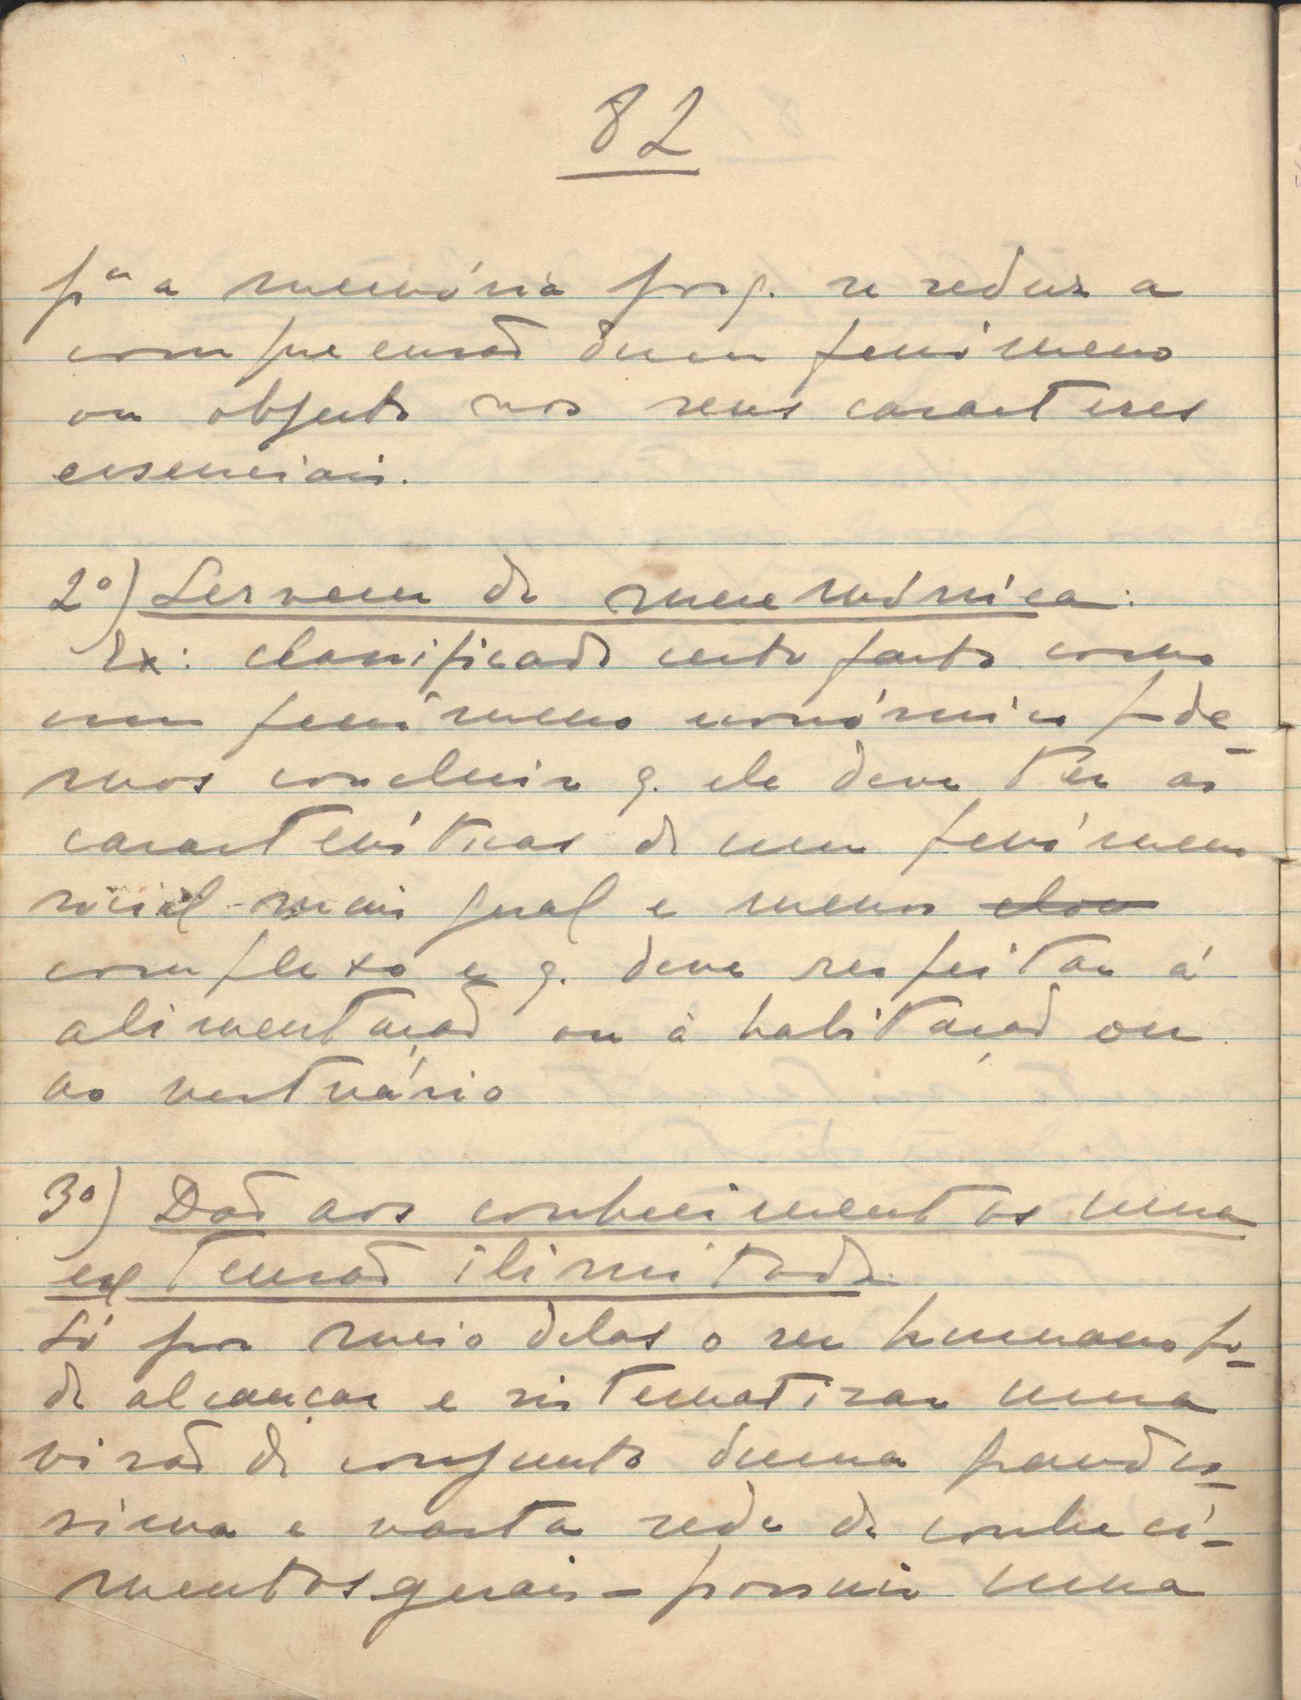 82
pª a memória porq. se reduz a
compreensão dum fenómeno
ou objecto nos seus caracteres
essenciais.
2º) Servem de mnemónica:
Ex: classificado certo facto como
um fenómeno económico pode-
mos concluir q. ele deve ter as
características de um fenómeno
social mais geral e menos
complexo e q. deve respeitar á
alimentação ou à habitação ou
ao vestuário
3º) Dão aos conhecimentos uma
extensão ilimitada.
Só por meio delas o ser humano po-
de alcançar e sistematizar uma
visão de conjunto duma grandis-
sima e vasta rede de conheci-
mentos gerais - possuir uma